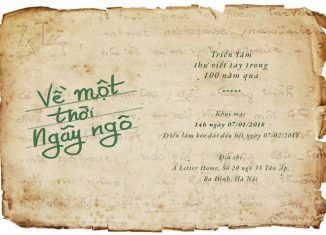 Về một
thời
Ngây ngô
Triển lãm
thư viết tay trong
100 năm qua
Khai mạc
14h ngày 07/01/2018
Triển lãm kéo dài đến hết ngày 07/02/2018
Địa chỉ
A Letter Home, Số 20 ngõ 33 Tân Ấp,
Ba Đình, Hà Nội